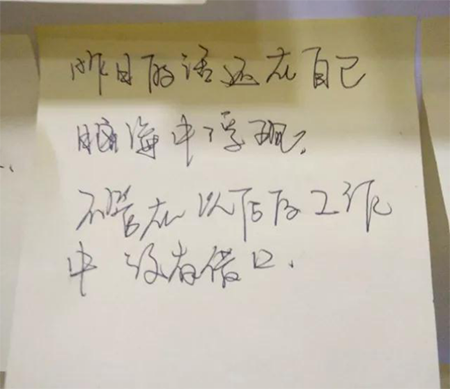 昨日的话还在自己
脑海中浮现.
不管在以后的工作
中没有借口.